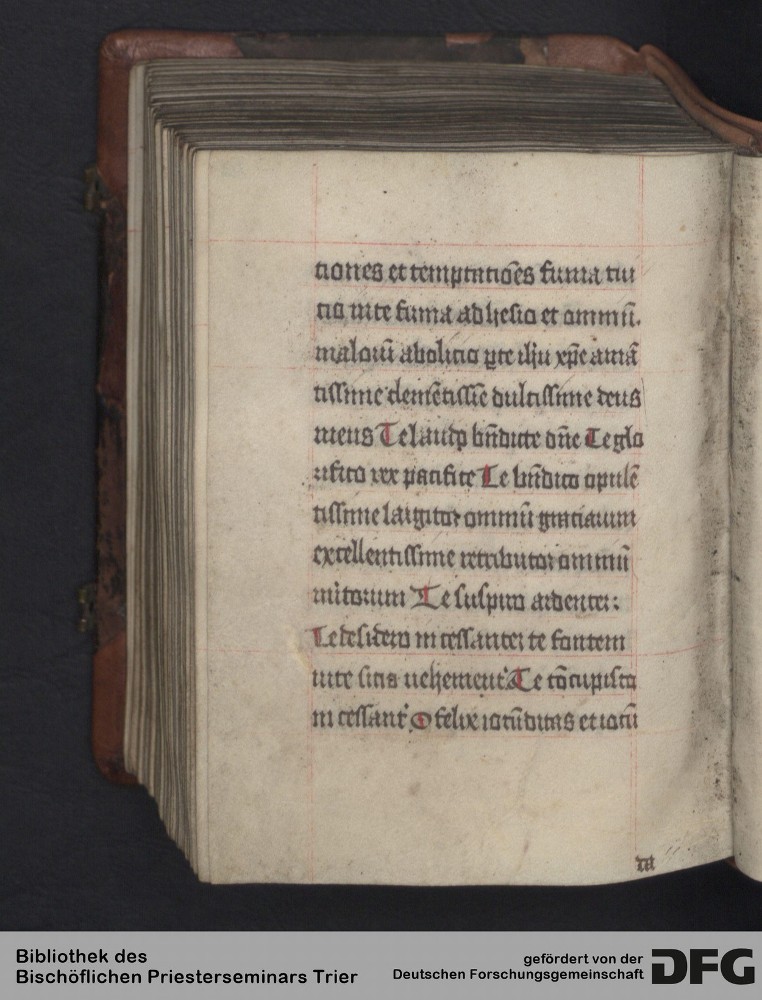 tiones et temptatiōes summa tui
tio vite summa adhesio et omniū.
maloꝝ abolitio ꝑ te ihū xpē amā
tissime clemētissīe dulcissime deus
meus Te laudo bn̄dicte dn̄e Te glo
rifico rex pacifice Te bn̄dico opulē
tissime largitor omniū graciarum
excellentissime retributor omniū
meritorum Te suspiro ardenter:
Te desidero incessanter te fontem
vite sitio vehement᷑ Te cōcupisco
incessant᷑ O felix iocūditas et iocū
Bibliothek des
Bischöflichen Priesterseminars Trier
gefördert von der
Deutschen Forschungsgemeinschaft
DFG